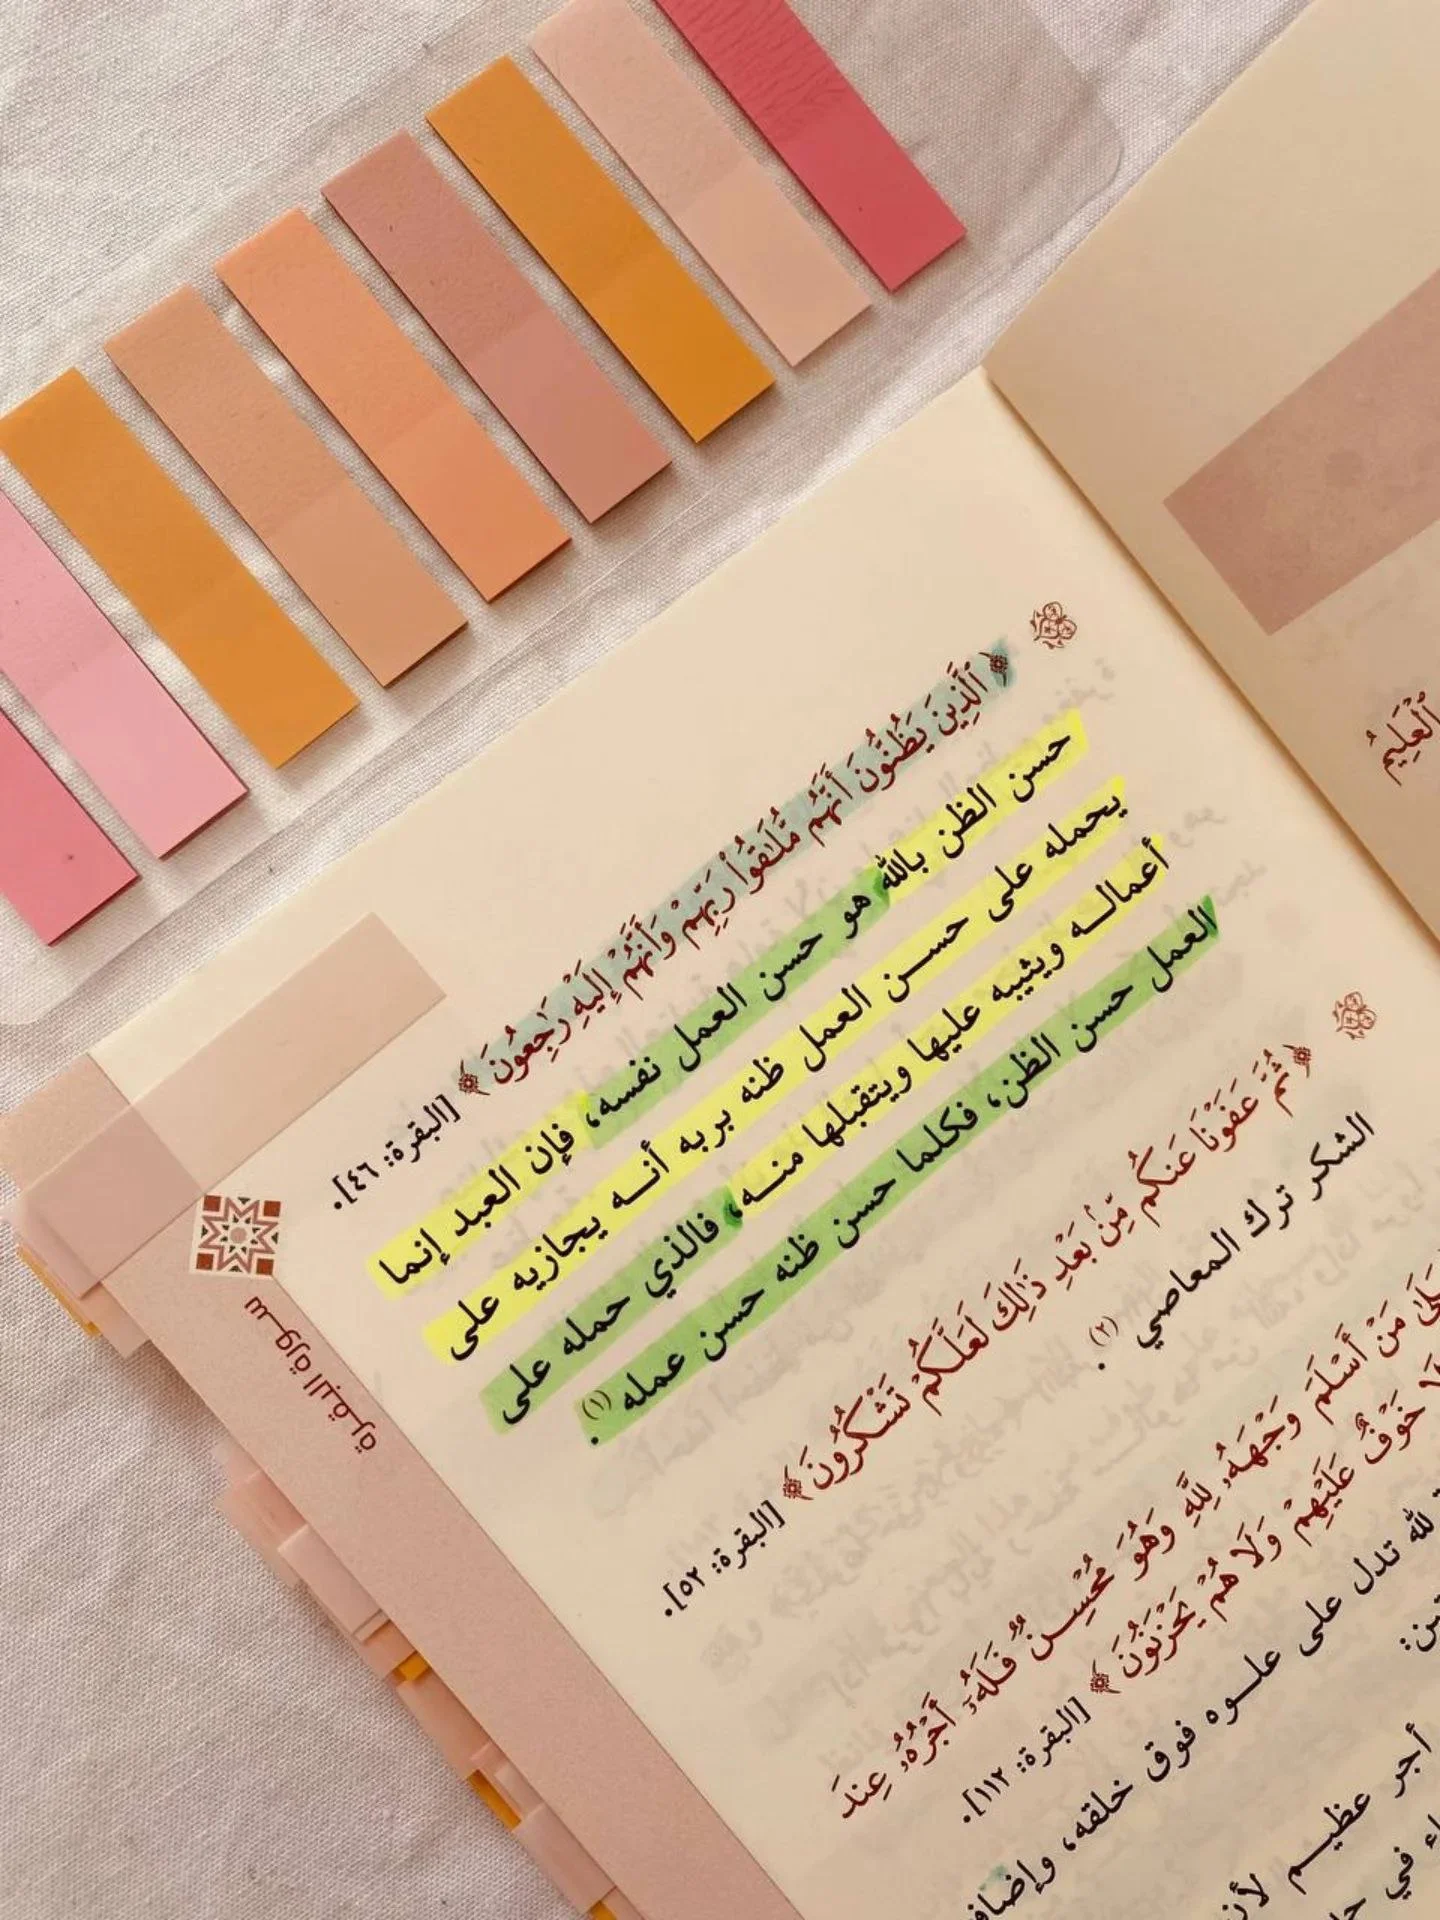 ﴿ٱلَّذِينَ يَظُنُّونَ أَنَّهُم مُّلَٰقُوا۟ رَبِّهِمْ وَأَنَّهُمْ إِلَيْهِ رَٰجِعُونَ﴾ [البقرة: ٤٦].
حسن الظن بالله هو حسن العمل نفسه، فإن العبد إنما
يحمله على حسن العمل ظنه بربه أنه يجازيه على
أعماله ويثيبه عليها ويتقبلها منه، فالذي حمله على
العمل حسن الظن، فكلما حسن ظنه حسن عمله (١).
﴿ثُمَّ عَفَوْنَا عَنكُم مِّنۢ بَعْدِ ذَٰلِكَ لَعَلَّكُمْ تَشْكُرُونَ﴾ [البقرة: ٥٢].
الشكر ترك المعاصي (٢).
مَنْ أَسْلَمَ وَجْهَهُۥ لِلَّهِ وَهُوَ مُحْسِنٌ فَلَهُۥٓ أَجْرُهُۥ عِندَ
خَوْفٌ عَلَيْهِمْ وَلَا هُمْ يَحْزَنُونَ﴾ [البقرة: ١١٢].
لله تدل على علوه فوق خلقه، وإضاف
أجر عظيم لأن
في
سورة البقرة
ٱلْعَلِيمُ